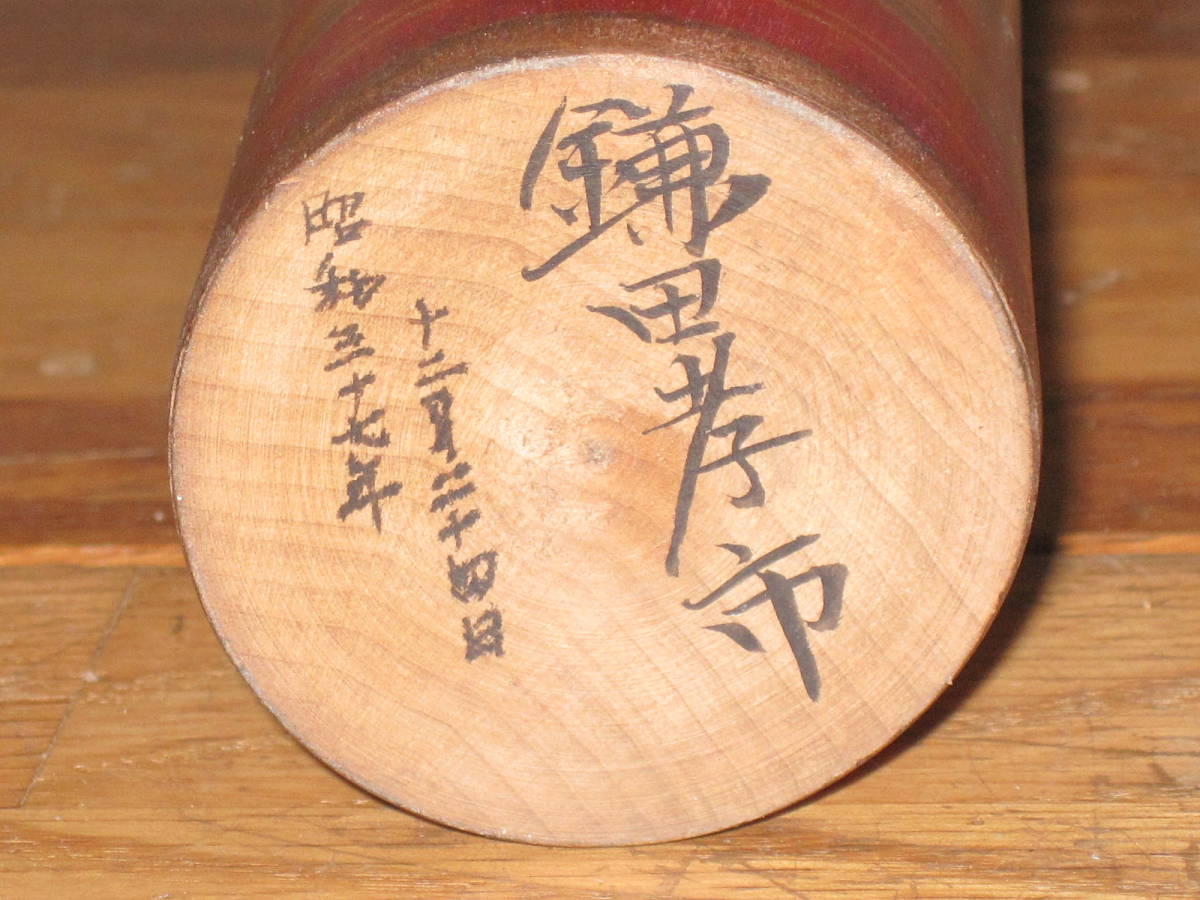 鎌田孝市
昭和五十七年
十二月二十四日